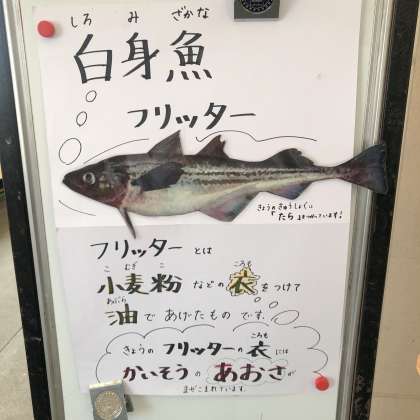 しろみざかな
白身魚
フリッター
きょうのきゅうしょくに
たらをつかっています！
フリッターとは
こむぎこ ころも
小麦粉などの衣をつけて
あぶら
油であげたものです。
ころも
きょうのフリッターの衣には
かいそうのあおさが
まぜこまれています。